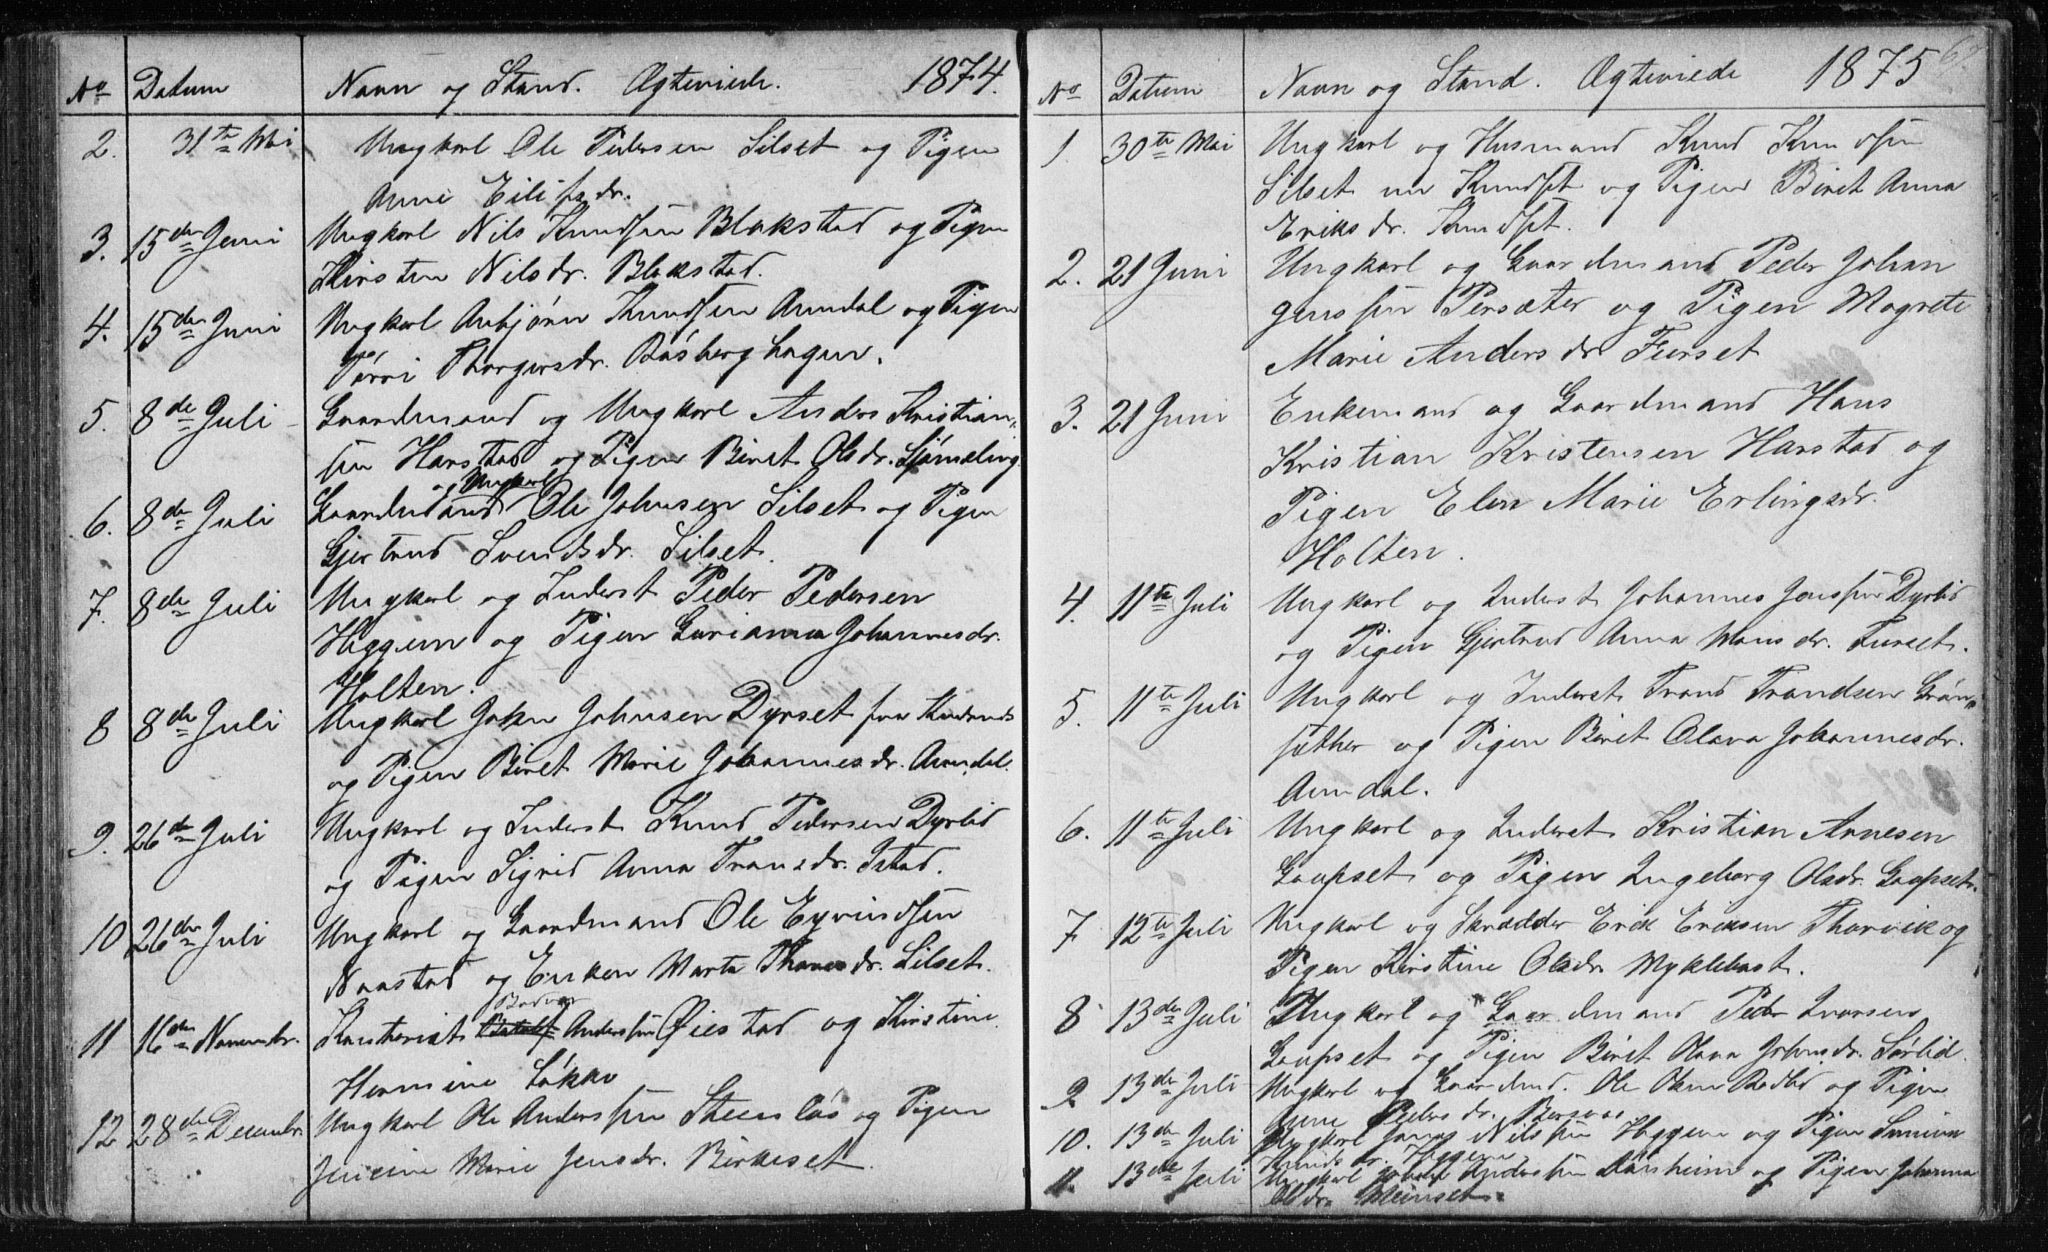 No Datum Navn og Stand. Ægteviede. 1874.
2. 31te Mai Ungkarl Ole Pedersen Silset og Pigen
Anne Eilifsdr.
3. 15de Juni Ungkarl Nils Knudsen Blakstad og Pigen
Kirsten Nilsdr. Blakstad.
4. 15de Juni Ungkarl Anbjørn Knudsen Aundal og Pigen
Thorgersdr. Båsberghagen.
5. 8de Juli Gaardmand og Ungkarl Anders Kristian-
sen Harstad og Pigen Beret Olsdr.
og Ungkarl
6. 8de Juli Gaardmand Ole Johnsen Silset og Pigen
Gjertrud Svendsdr. Silset.
7. 8de Juli Ungkarl og Inderst Peder Pedersen
Heggem og Pigen Gurianna Johannesdr.
Holten.
8 8de Juli Ungkarl John Johnsen Dyrset fra
og Pigen Beret Marie Johannesdr. Aundal.
9. 26de Juli Ungkarl og Inderst Knud Pedersen Dyrlid
og Pigen Sigrid Anna Transdr. Istad.
10 26de Juli Ungkarl og Gaardmand Ole Eyvindsen
Naastad og Enken Marta Thomesdr. Silset.
11 16de Novembr. Andersen Øiestad og Kirstine
Hermine Løkke
12 28de Decembr. Ungkarl Ole Andersen Steenløs og Pigen
Marie Jensdr. Birkeset.
No Datum Navn og Stand. Ægteviede 1875
1. 30te Mai Ungkarl og Husmand Knud Knudsen
Silset Knudset og Pigen Beret Anna
Eriksdr. Knudset.
2. 21 Juni Ungkarl og Gaardmand Peder Johan
Jenssen Persæter og Pigen Magrete
Marie Andersdr Furset
3. 21 Juni Enkemand og Gaardmand Hans
Kristian Kristensen Harstad og
Pigen Elen Marie Erlingsdr.
Holten.
4. 11te Juli Ungkarl og Inderst Johannes Jenssen Dyrlid
og Pigen Gjertrud Anna Monsdr. Furset.
5. 11te Juli Ungkarl og Inderst Trond Trondsen Grøn-
sæther og Pigen Beret Olava Johannesdr.
Aundal.
6. 11te Juli Ungkarl og Inderst Kristian Arnesen
Gaupset og Pigen Ingeborg Olsdr. Gaupset.
7 12te Juli Ungkarl og Skrædder Erik Eriksen Thorvik og
Pigen Kirstine Olsdr Myklebost.
8 13de Juli Ungkarl og Gaardmand Peder Ivarsen
Gaupset og Pigen Beret Olava Johnsdr. Sørlid.
9. 13de Juli Ungkarl og Gaardmd. Ole Olsen Rødlid og Pigen
Pedersdr.
10. 13de Juli Ungkarl Nilssen Heggem og Pigen
Knudsdr. Heggem
11. 13de Juli Ungkarl Johan Anderssen og Pigen Johanna
Olsdr. Meinset.